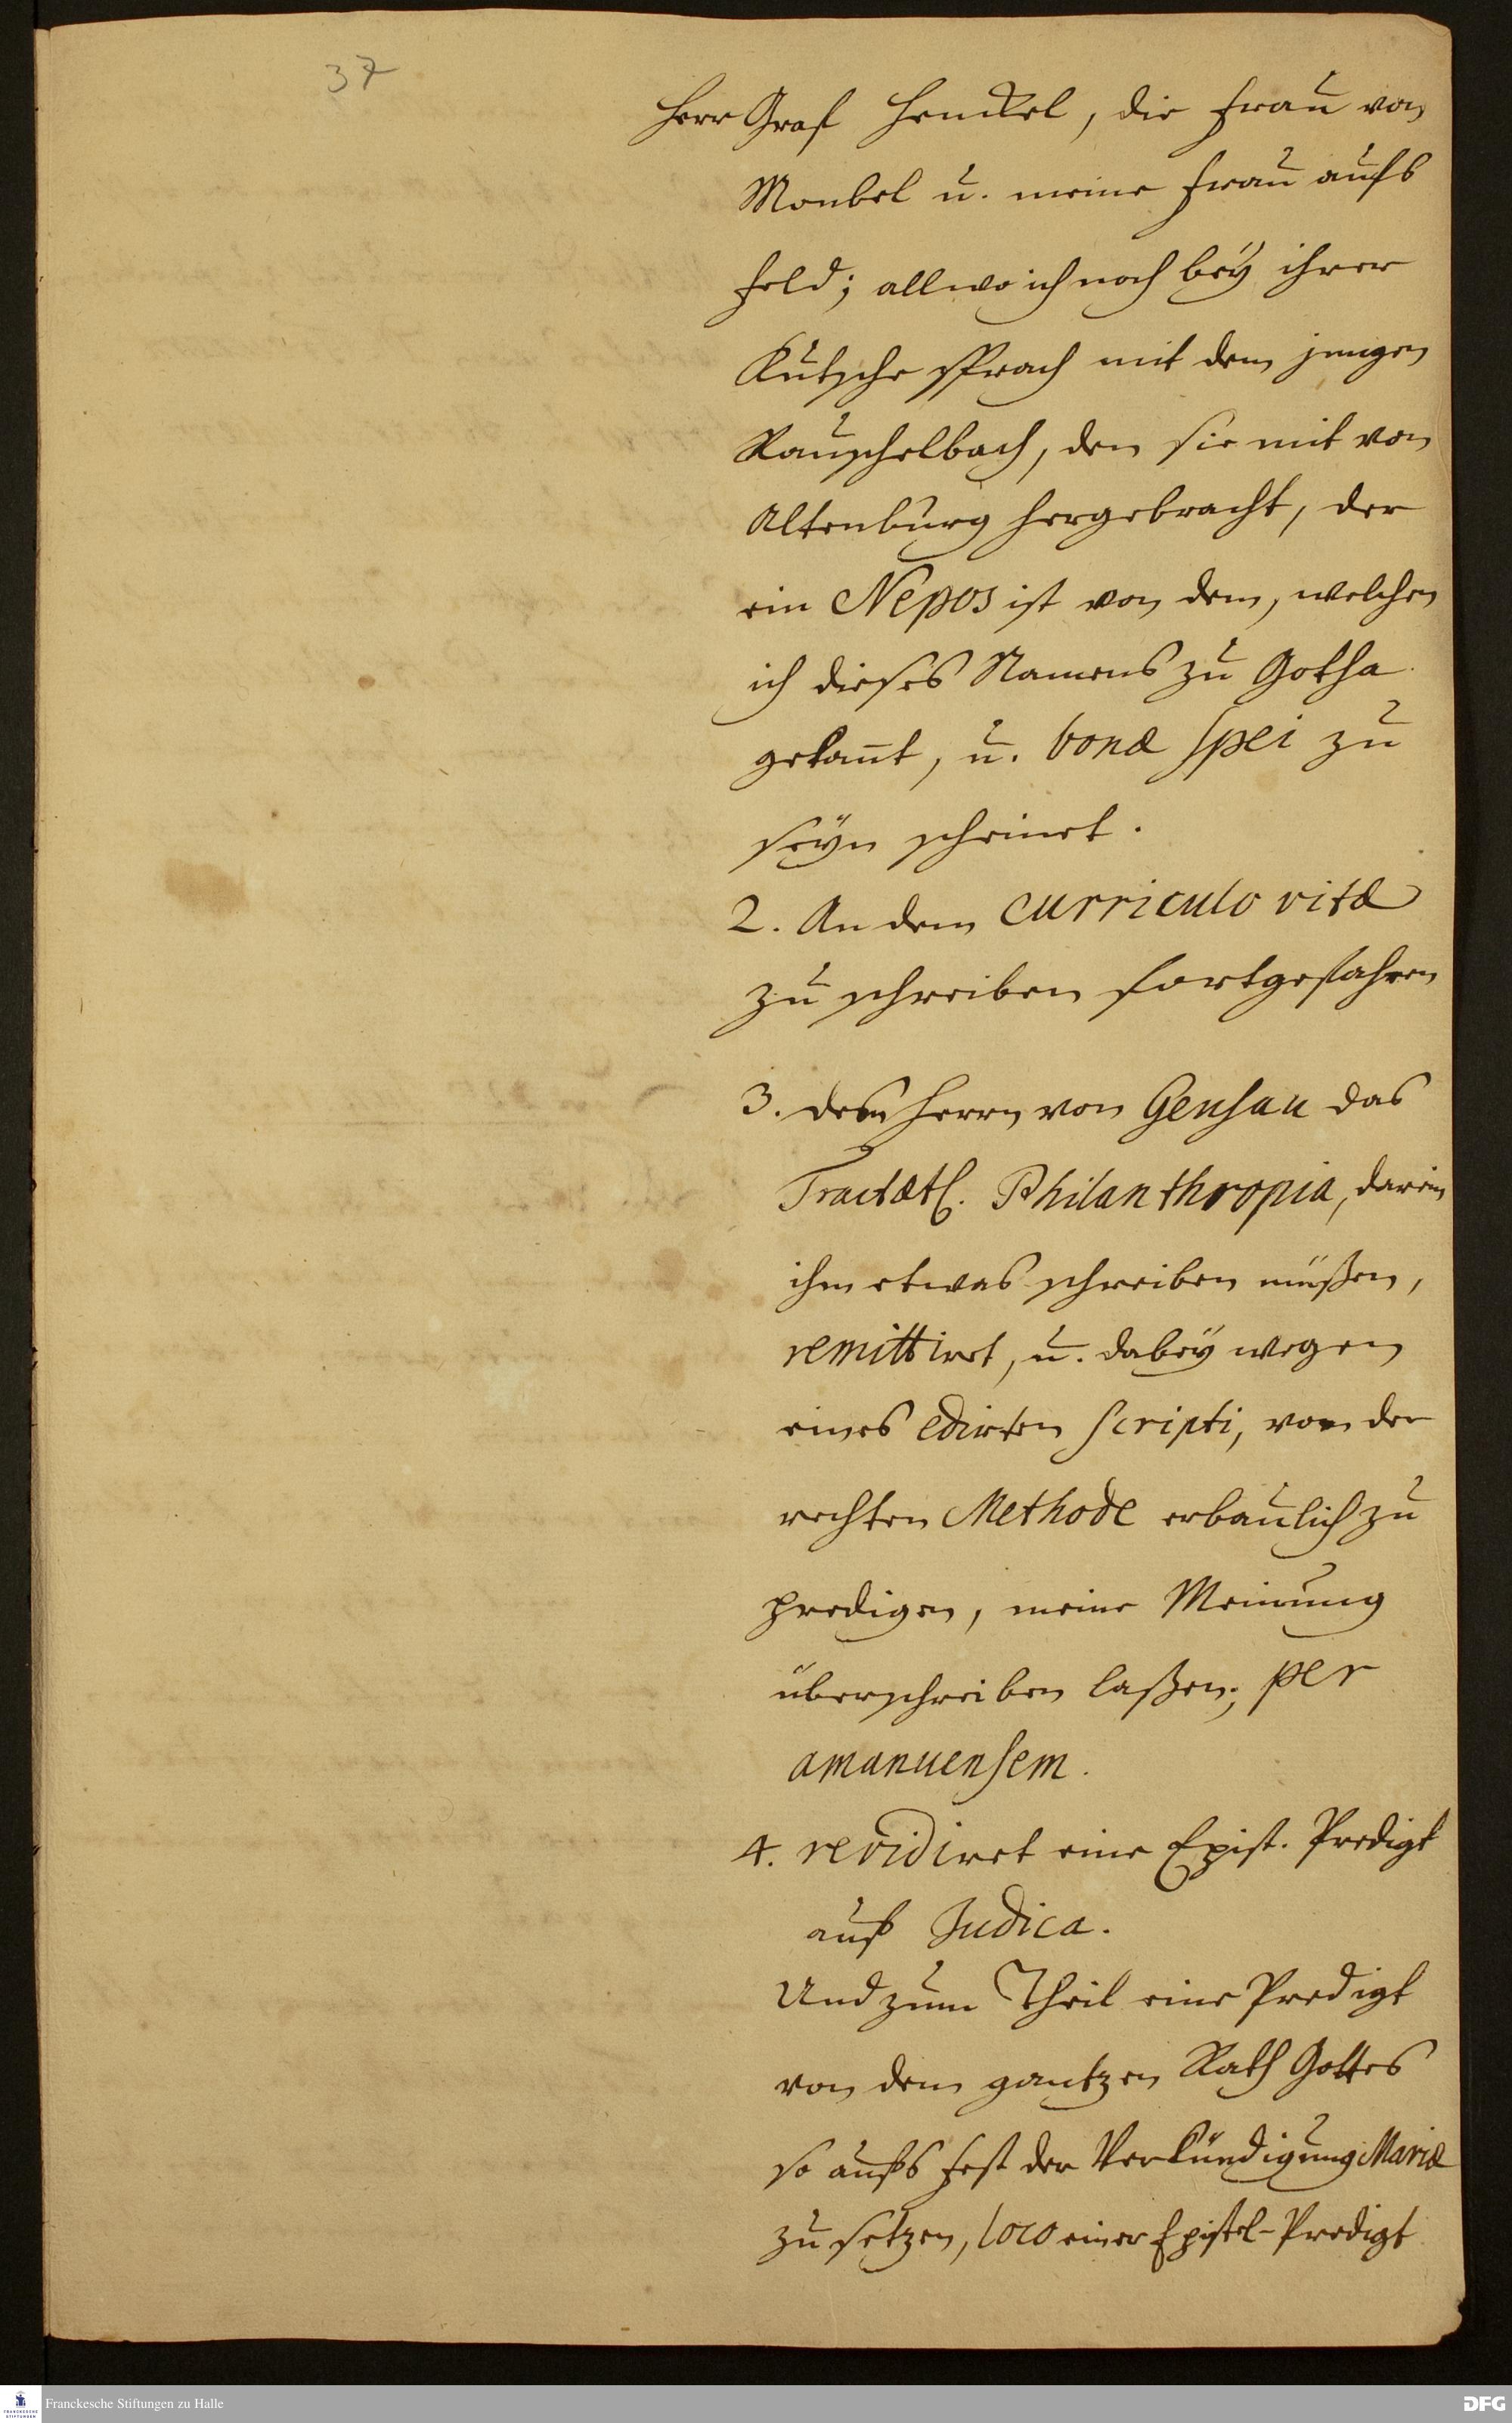 37
Herr Graf Henckel, die Frau von
Monbel u. meine Frau aufs
Feld; allwo ich noch bey ihrer
Kutsche sprach mit dem jungen
Rauschelbach, den sie mit von
Altenburg hergebracht, der
ein Nepos ist von dem, welchen
ich dieses Namens zu Gotha
gekañt, u. bonæ spei zu
seyn scheinet.
2. An dem curriculo vitæ
zu schreiben fortgefahren
3. dem Herrn von Gensau das
Tractætl. Philanthropia, darein
ihm etwas schreiben müßen,
remittiret, u. dabey wegen
eines edirten scripti, von der
rechten Methode erbaulich zu
predigen, meine Meinung
überschreiben laßen; per
amanuensem.
4. revidiret eine Epist. Predigt
auf Judica.
Und zum Theil eine Predigt
von dem gantzen Rath Gottes
so aufs Fest der Verkündigung Mariæ
zu setzen, loco einer Epistel-Predigt
Franckesche Stiftungen zu Halle
DFG